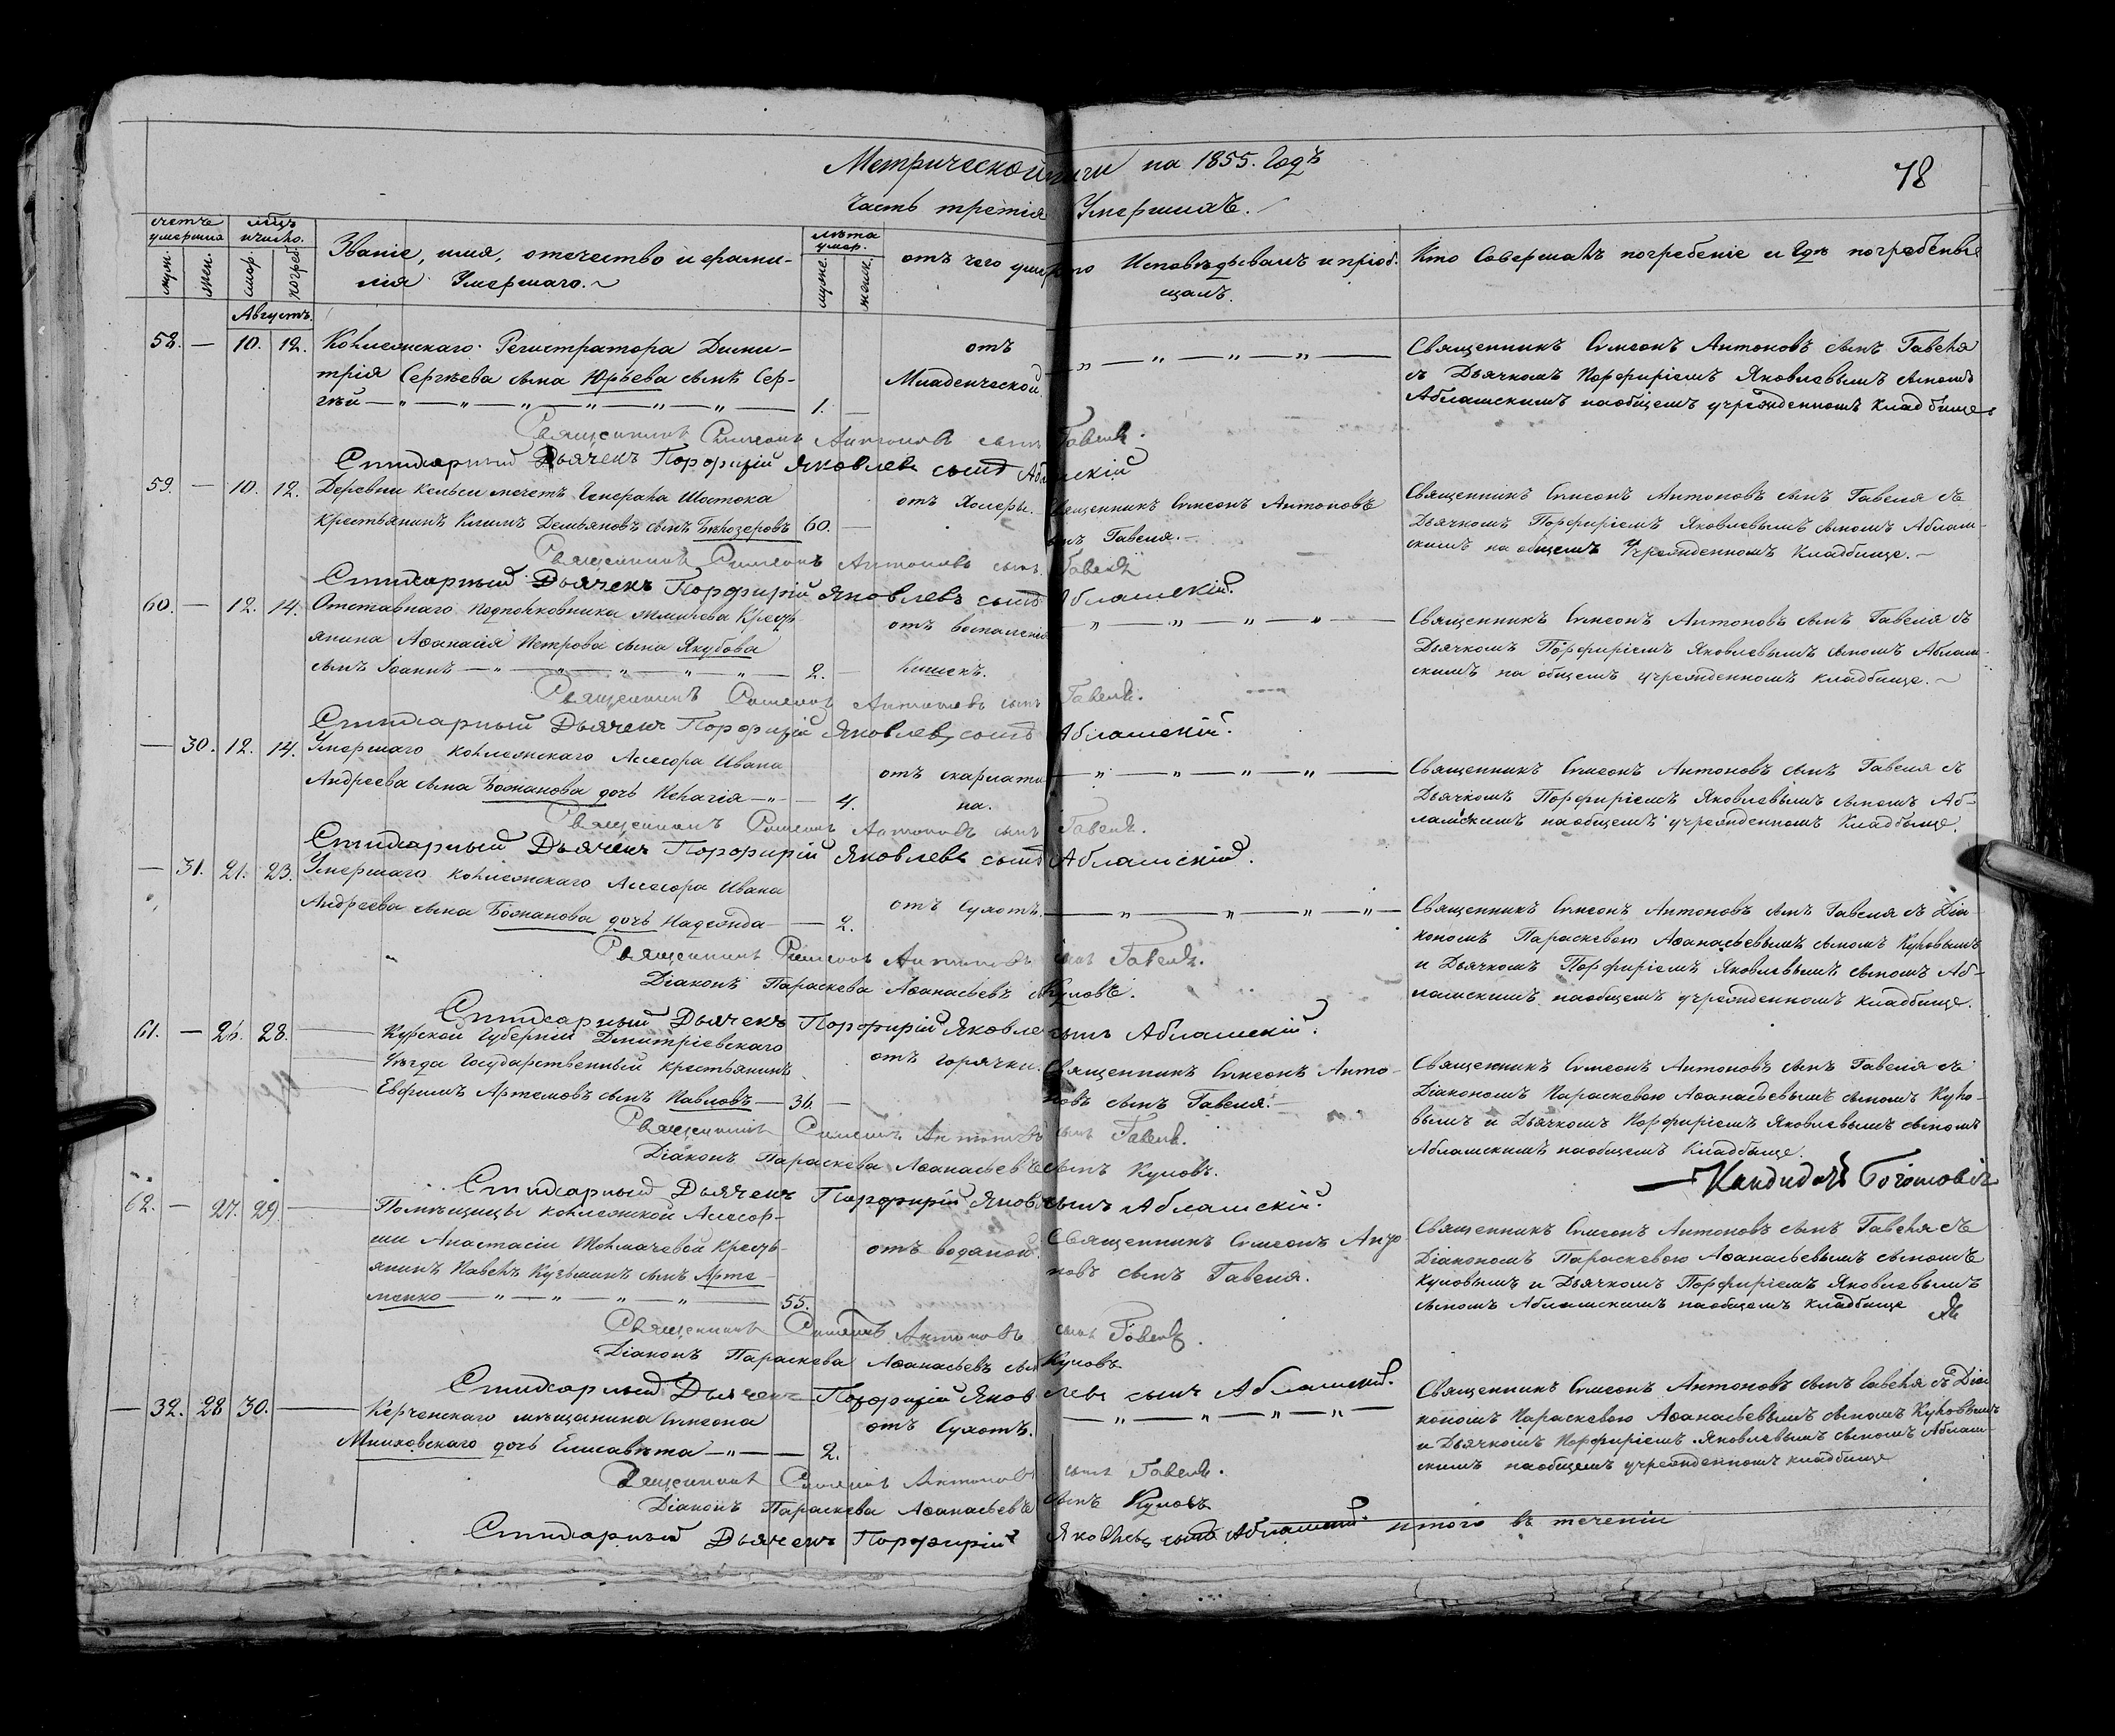 Метрической книги на 1855. Годъ
78
Часть третія Умершихъ.
счетъ умерших
мцъ и число.
Званіе, имя, отечество и фами-
лія Умершаго.
лѣта умер.
отъ чего умер
Кто Исповѣдывалъ и пріоб-
щалъ.
Кто Совершалъ погребеніе и Гдѣ погребены
муж. жен. смер. погреб. муже. женск.
Августъ.
58. — 10. 12. Коллежскаго Регистратора Дими-
трія Сергѣева сына Юрьева сынъ Сер-
гѣй — 1. —
отъ
Младенческой.
Священникъ Симеонъ Антоновъ сынъ Гавеля
съ Дьячкомъ Порфиріемъ Яковлевымъ сыномъ
Аблашскимъ на общемъ учрежденномъ Кладбище.
Священникъ Симеонъ Антоновъ сынъ Гавеля.
Стихарный Дьячекъ Порфирій Яковлевъ сынъ Аблашскій
59. — 10. 12. Деревни Кельси мечетъ Генерала Шостока
крестьянинъ Климъ Демьяновъ сынъ Бѣлозеровъ 60. —
отъ Холеры.
Священникъ Симеонъ Антоновъ
сынъ Гавеля.
Священникъ Симеонъ Антоновъ сынъ Гавеля съ
Дьячкомъ Порфиріемъ Яковлевымъ сыномъ Аблаш-
скимъ на общемъ Учрежденномъ Кладбище.
Священникъ Симеонъ Антоновъ сынъ Гавеля
Стихарный Дьячекъ Порфирій Яковлевъ сынъ Аблашскій.
60. — 12. 14. Отставнаго подполковника Крестъ
янина Аѳанасія Петрова сына Якубова
сынъ Іоаннъ — 2. —
отъ воспаленія
Кишекъ.
Священникъ Симеонъ Антоновъ сынъ Гавеля съ
Дьячкомъ Порфиріемъ Яковлевымъ сыномъ Аблаш-
скимъ на общемъ учрежденномъ кладбище.
Священникъ Симеонъ Антоновъ сынъ Гавеля.
Стихарный Дьячекъ Порфирій Яковлевъ сынъ Аблашскій.
— 30. 12. 14. Умершаго коллежскаго Асесора Ивана
Андреева сына Божанова дочь Пелагія — 4.
отъ скарлати
на.
Священникъ Симеонъ Антоновъ сынъ Гавеля съ
Дьячкомъ Порфиріемъ Яковлевымъ сыномъ Аб-
лашскимъ на общемъ учрежденномъ Кладбище.
Священникъ Симеонъ Антоновъ сынъ Гавеля.
Стихарный Дьячекъ Порфирій Яковлевъ сынъ Аблашскій.
— 31. 21. 23. Умершаго коллежскаго Асесора Ивана
Андреева сына Божанова дочь Надежда — 2.
отъ Сухотъ.
Священникъ Симеонъ Антоновъ сынъ Гавеля съ Діа-
кономъ Параскевою Аѳанасьевымъ сыномъ Куловымъ
и Дьячкомъ Порфиріемъ Яковлевымъ сыномъ Аб-
лашскимъ на общемъ учрежденномъ кладбище.
Священникъ Симеонъ Антоновъ сынъ Гавеля.
Діаконъ Параскева Аѳанасьевъ с Куловъ.
Стихарный Дьячекъ Порфирій Яковле сынъ Аблашскій.
61. — 26. 28. Курской Губерніи Дмитріевскаго
Уѣзда Государственный крестьянинъ
Евфимъ Артемовъ сынъ Павловъ — 36. —
отъ горячки.
Священникъ Симеонъ Анто-
новъ сынъ Гавеля.
Священникъ Симеонъ Антоновъ сынъ Гавеля съ
Діакономъ Параскевою Аѳанасьевымъ сыномъ Куло-
вымъ и Дьячкомъ Порфиріемъ Яковлевымъ сыномъ
Аблашскимъ на общемъ Кладбище.
Священникъ Симеонъ Антоновъ сынъ Гавеля.
Діаконъ Параскева Аѳанасьевъ сынъ Куловъ.
Стихарный Дьячекъ Порфирій Яков сынъ Аблашскій.
62. — 27. 29. Помѣщицы коллежской Асесор-
ши Анастасіи Толмачевой Кресть-
янинъ Павелъ Кузьминъ сынъ Арте-
менко — 55.
отъ водяной.
Священникъ Симеонъ Анто
новъ сынъ Гавеля.
Священникъ Симеонъ Антоновъ сынъ Гавеля съ
Діакономъ Параскевою Аѳанасьевымъ сыномъ
Куловымъ и Дьячкомъ Порфиріемъ Яковлевымъ
сыномъ Аблашскимъ на общемъ кладбище
Священникъ Симеонъ Антоновъ сынъ Гавеля.
Діаконъ Параскева Аѳанасьевъ сын Куловъ
Стихарный Дьячекъ Порфирій Яков левъ сынъ Аблашскій.
— 32. 28 30. Керченскаго мѣщанина Симеона
Мниховскаго дочь Елисавѣта — 2.
отъ Сухотъ.
Священникъ Симеонъ Антоновъ сынъ Гавеля съ Діа
кономъ Параскевою Аѳанасьевымъ сыномъ Куловымъ
и Дьячкомъ Порфиріемъ Яковлевымъ сыномъ Аблаш-
скимъ на общемъ учрежденномъ кладбище
Священникъ Симеонъ Антоновъ сынъ Гавеля.
Діаконъ Параскева Аѳанасьевъ сынъ Куловъ
Стихарный Дьячекъ Порфирій Яковлевъ сынъ Аблашскій.
итого въ теченіи